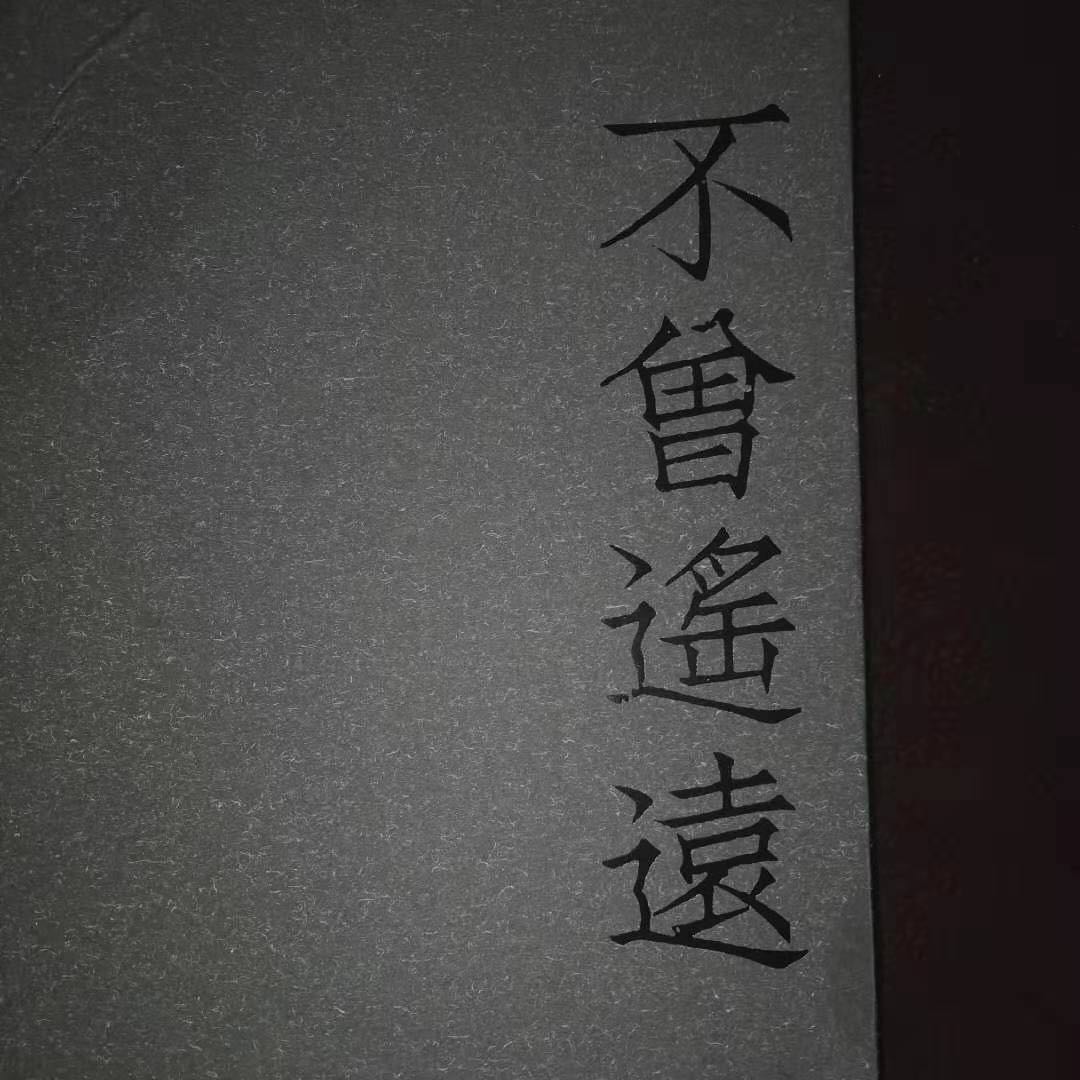 不曾遙遠